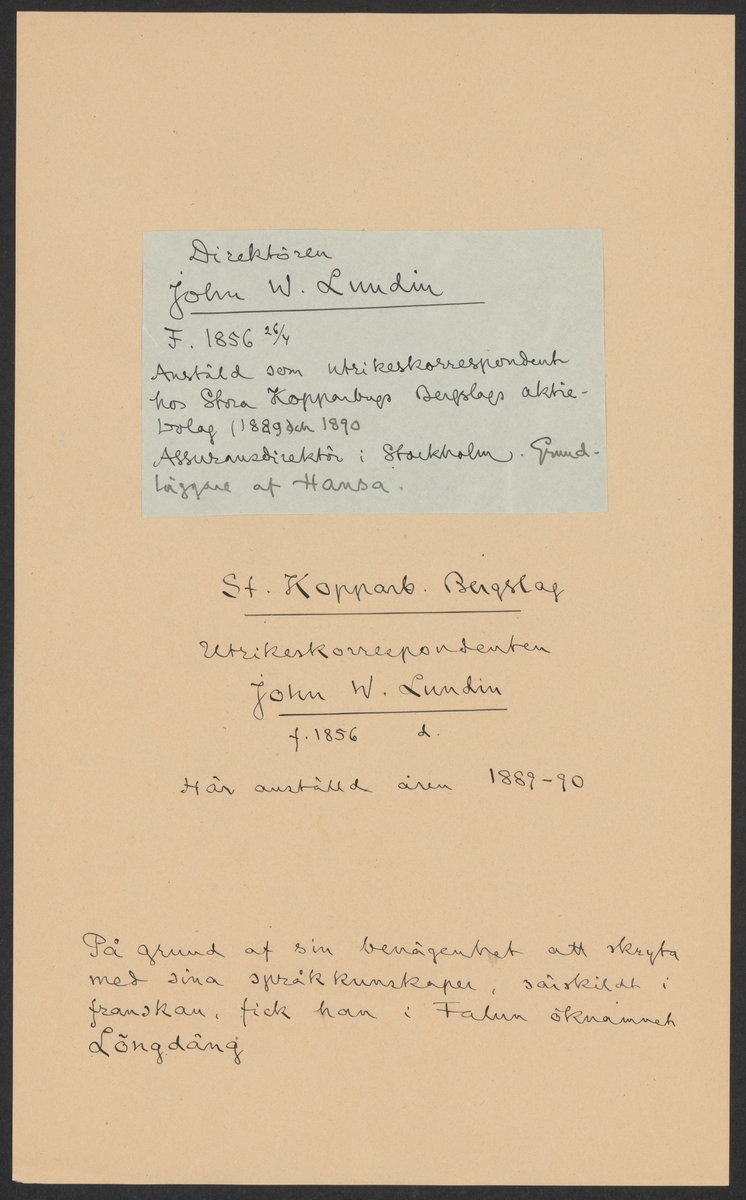 Direktören
John W. Lundin
F. 1856 26/4
Anstäld som utrikeskorrespondent
hos Stora Kopparbergs Bergslags aktie-
bolag (1889 och 1890
Assuransdirektör i Stockholm. Grund-
läggare af Hansa.
St. Kopparb. Bergslag
Utrikeskorrespondenten
John W. Lundin
f. 1856 d.
Här anställd åren 1889-90
På grund af sin benägenhet att skryta
med sina språkkunskaper, särskildt i
franskan, fick han i Falun öknamnet
Löngdäng